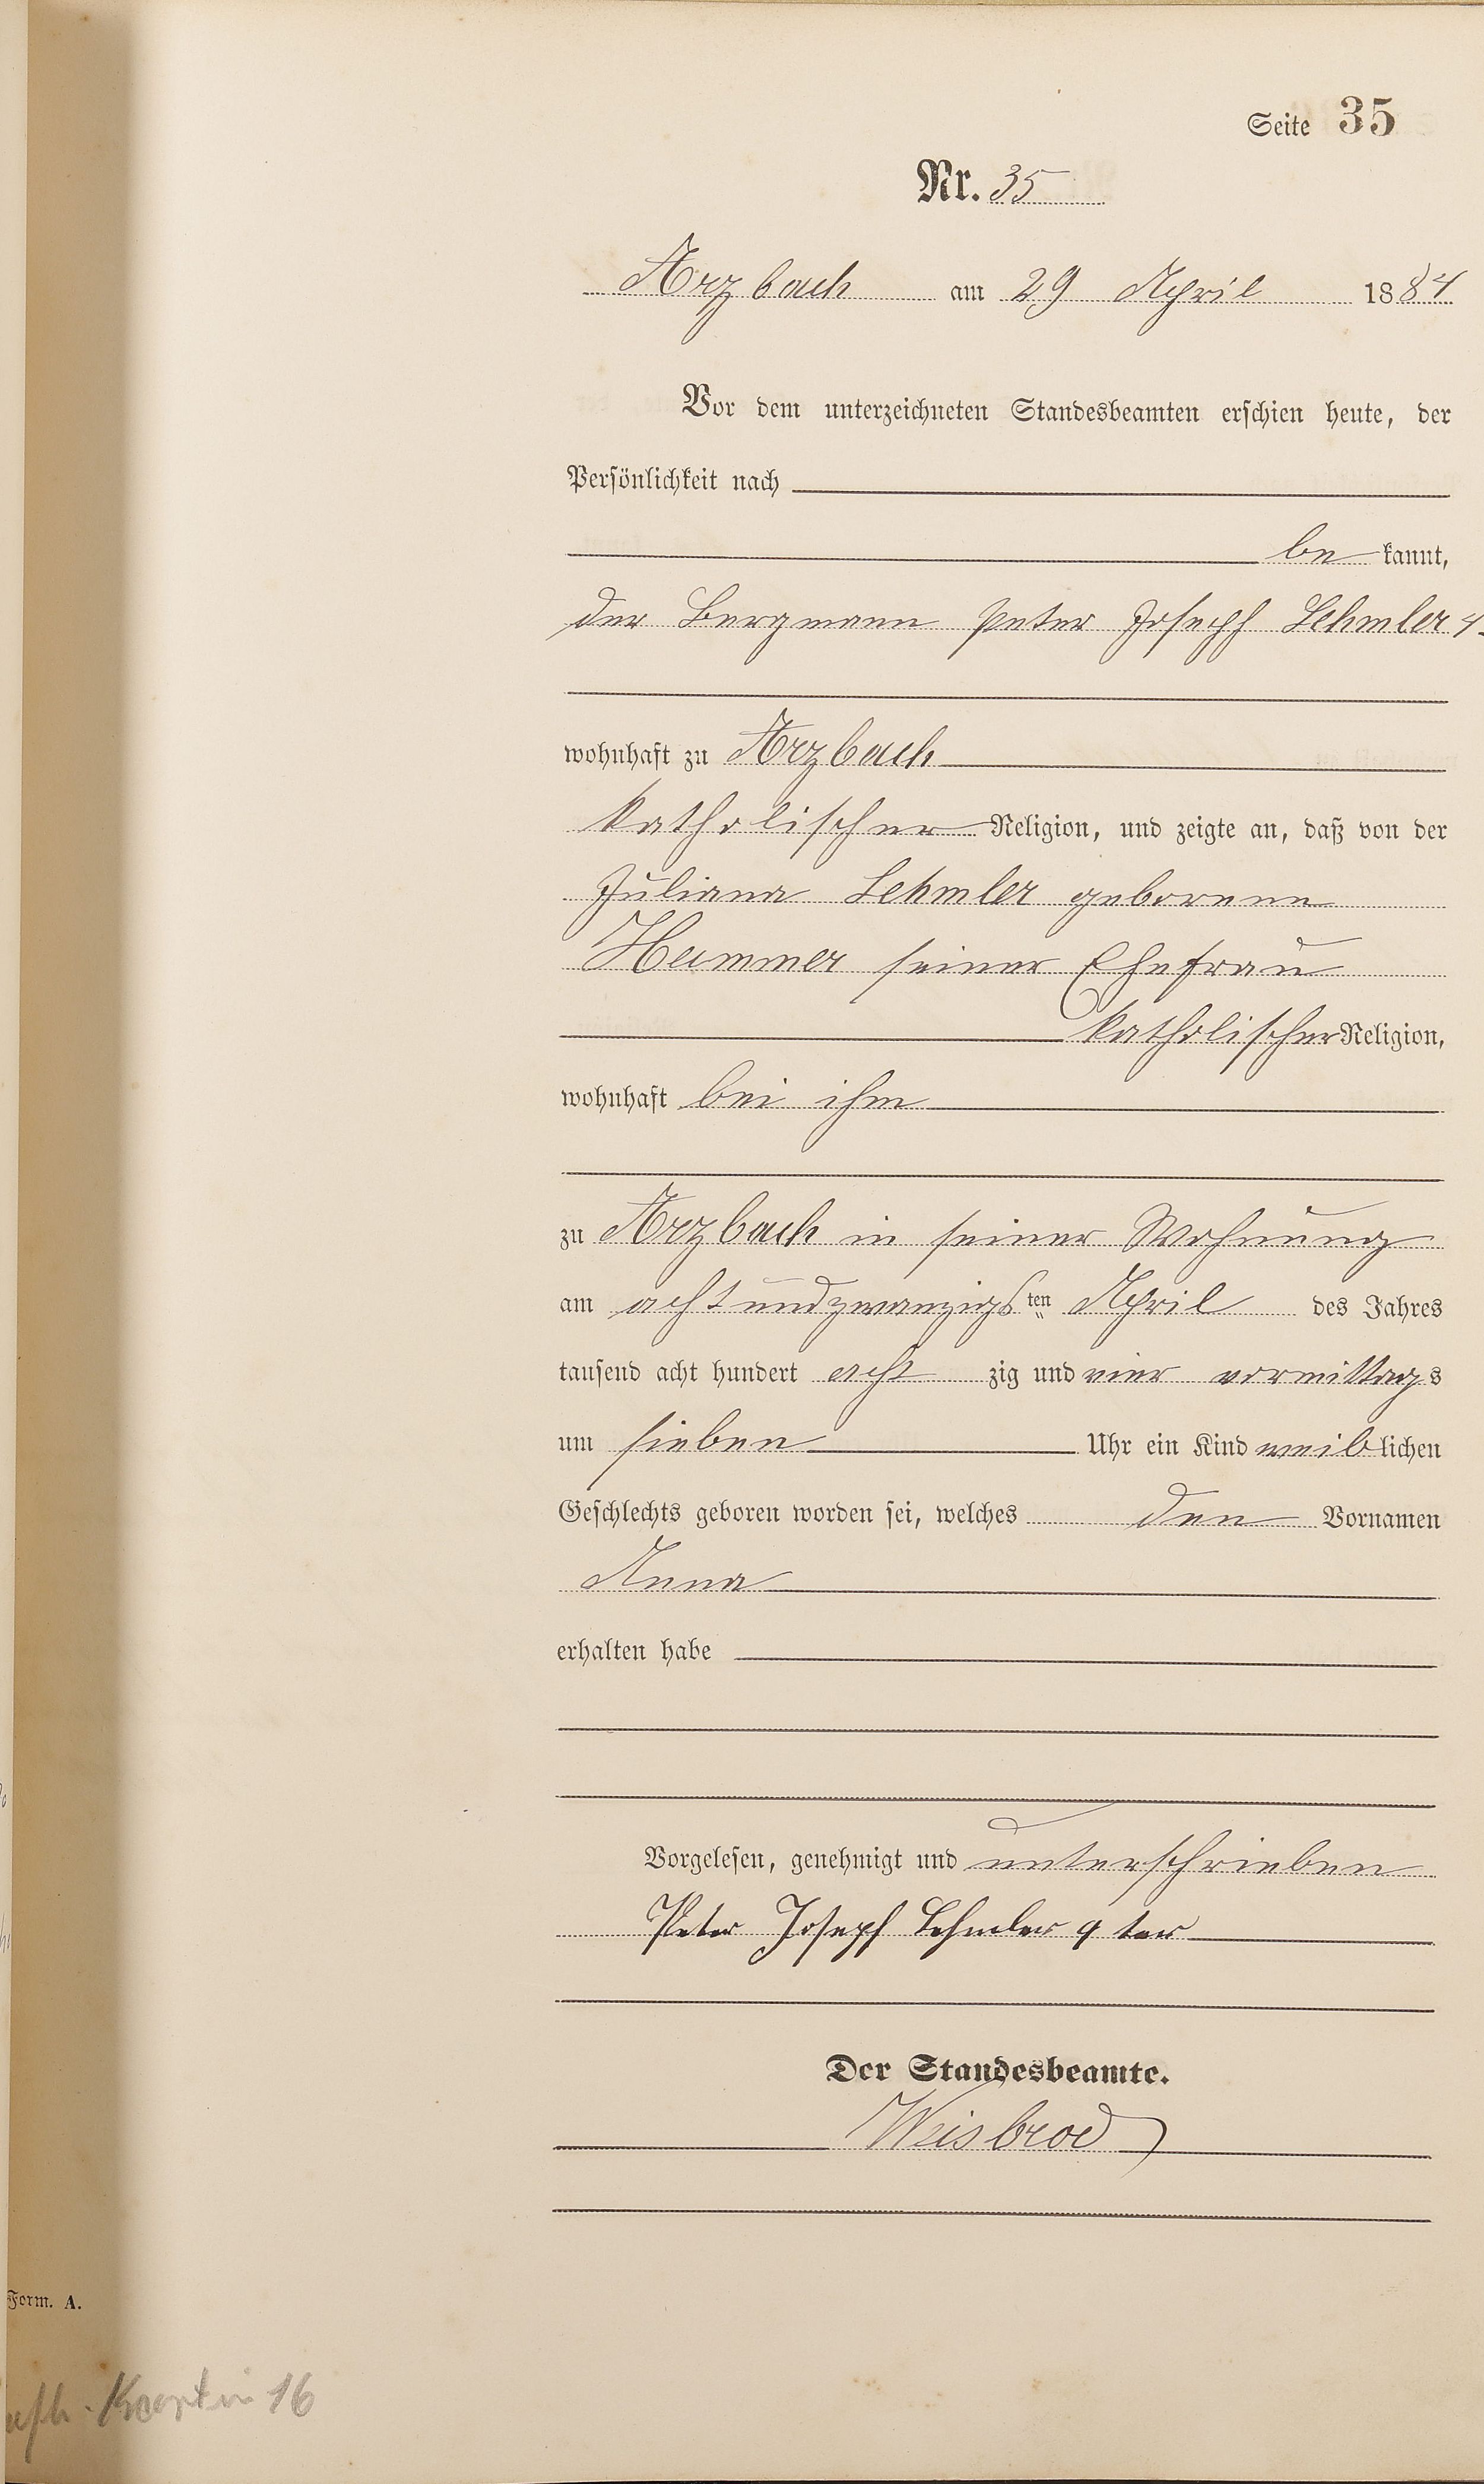 Seite 35
Nr. 35
Arzbach am 29 April 1884
Vor dem unterzeichneten Standesbeamten erschien heute, der
Persönlichkeit nach
be kannt,
der Bergmann Peter Joseph Lehmler 4.
wohnhaft zu Arzbach
katholischer Religion, und zeigte an, daß von der
Juliana Lehmler geborene
Hammer seiner Ehefrau
katholischer Religion,
wohnhaft bei ihm
zu Arzbach in seiner Wohnung
am achtundzwanzigsten April des Jahres
tausend acht hundert acht zig und vier vormittags
um sieben Uhr ein Kind weiblichen
Geschlechts geboren worden sei, welches den Vornamen
Anna
erhalten habe
Vorgelesen, genehmigt und unterschrieben
Peter Joseph Lehmler 4 ter
Der Standesbeamte.
Weisbrod
Form. A.
16